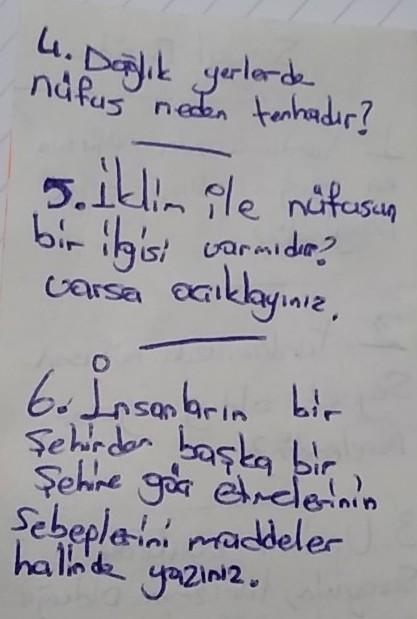 4. Dağlık yerlerde
nüfus neden tenhadır?
5. İklim ile nüfusun
bir ilgisi varmıdır?
varsa açıklayınız.
6. İnsanların bir
şehirden başka bir
şehire göç etmelerinin
sebeplerini maddeler
halinde yazınız.